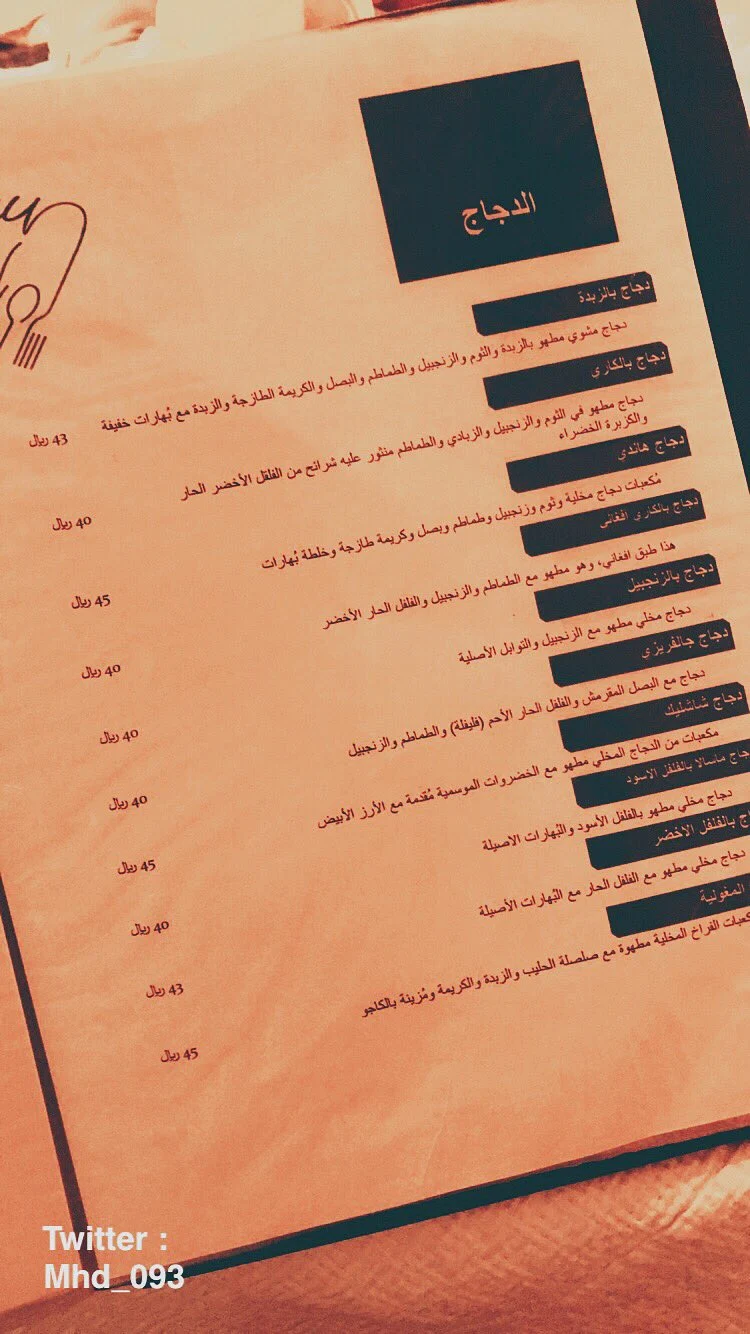 الدجاج
دجاج بالزبدة
دجاج مشوي مطهو بالزبدة والثوم والزنجبيل والطماطم والبصل والكريمة الطازجة والزبدة مع بُهارات خفيفة
43 ريال
دجاج بالكاري
دجاج مطهو في الثوم والزنجبيل والزبادي والطماطم منثور عليه شرائح من الفلفل الأخضر الحار
والكزبرة الخضراء
40 ريال
دجاج هاندي
مُكعبات دجاج مخلية وثوم وزنجبيل وطماطم وبصل وكريمة طازجة وخلطة بُهارات
45 ريال
دجاج بالكاري افغانى
هذا طبق افغاني، وهو مطهو مع الطماطم والزنجبيل والفلفل الحار الأخضر
40 ريال
دجاج بالزنجبيل
دجاج مخلي مطهو مع الزنجبيل والتوابل الأصلية
40 ريال
دجاج جالفريزي
دجاج مع البصل المقرمش والفلفل الحار الأحم (فليفلة) والطماطم والزنجبيل
40 ريال
دجاج شاشليك
مكعبات من الدجاج المخلي مطهو مع الخضروات الموسمية مُقدمة مع الأرز الأبيض
45 ريال
ماسالا بالفلفل الاسود
دجاج مخلي مطهو بالفلفل الأسود والبُهارات الاصيلة
40 ريال
بالفلفل الاخضر
دجاج مخلي مطهو مع الفلفل الحار مع البُهارات الأصيلة
43 ريال
المغولية
الفراخ المخلية مطهوة مع صلصلة الحليب والزبدة والكريمة ومُزينة بالكاجو
45 ريال
Twitter :
Mhd_093